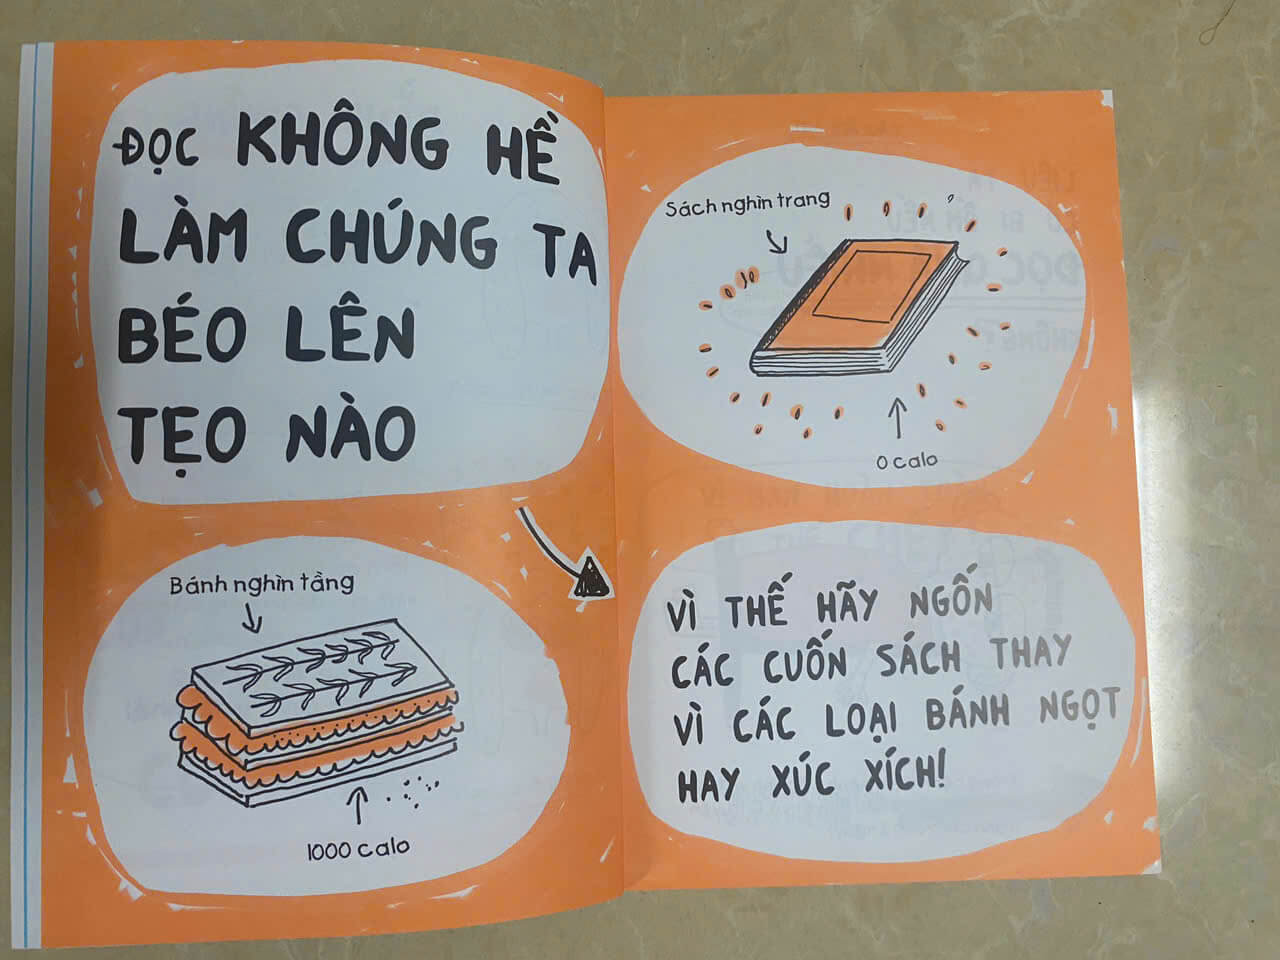 ĐỌC KHÔNG HỀ
LÀM CHÚNG TA
BÉO LÊN
TẸO NÀO
Bánh nghìn tầng
1000 calo
Sách nghìn trang
0 calo
VÌ THẾ HÃY NGỐN
CÁC CUỐN SÁCH THAY
VÌ CÁC LOẠI BÁNH NGỌT
HAY XÚC XÍCH!